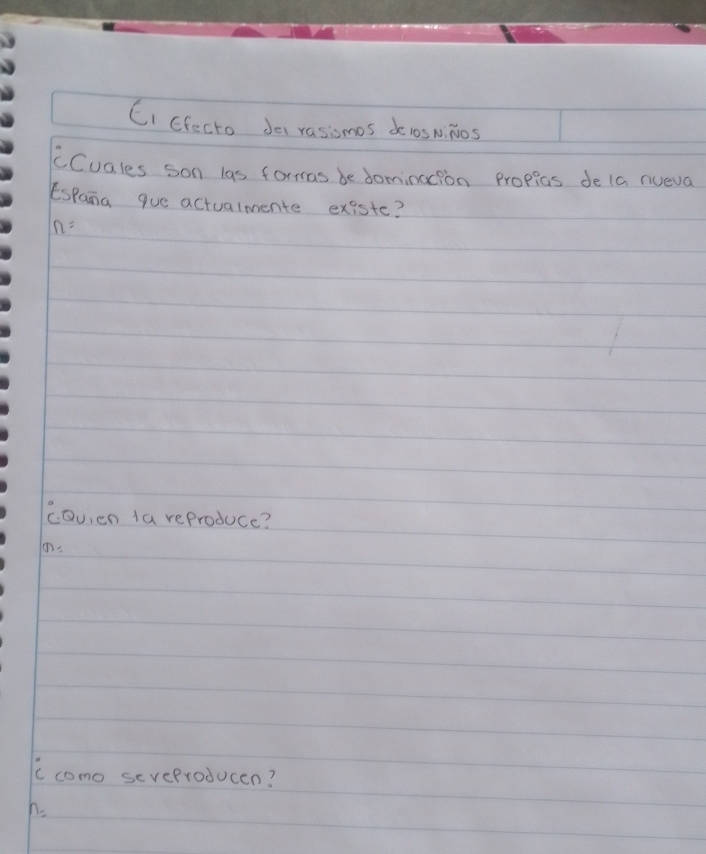 El Efecto del rasismos de los NiÑos
¿Cuales son las formas de dominación propias de la nueva
España que actualmente existe?
n=
¿Quien la reproduce?
n=
¿como se reproducen?
n=